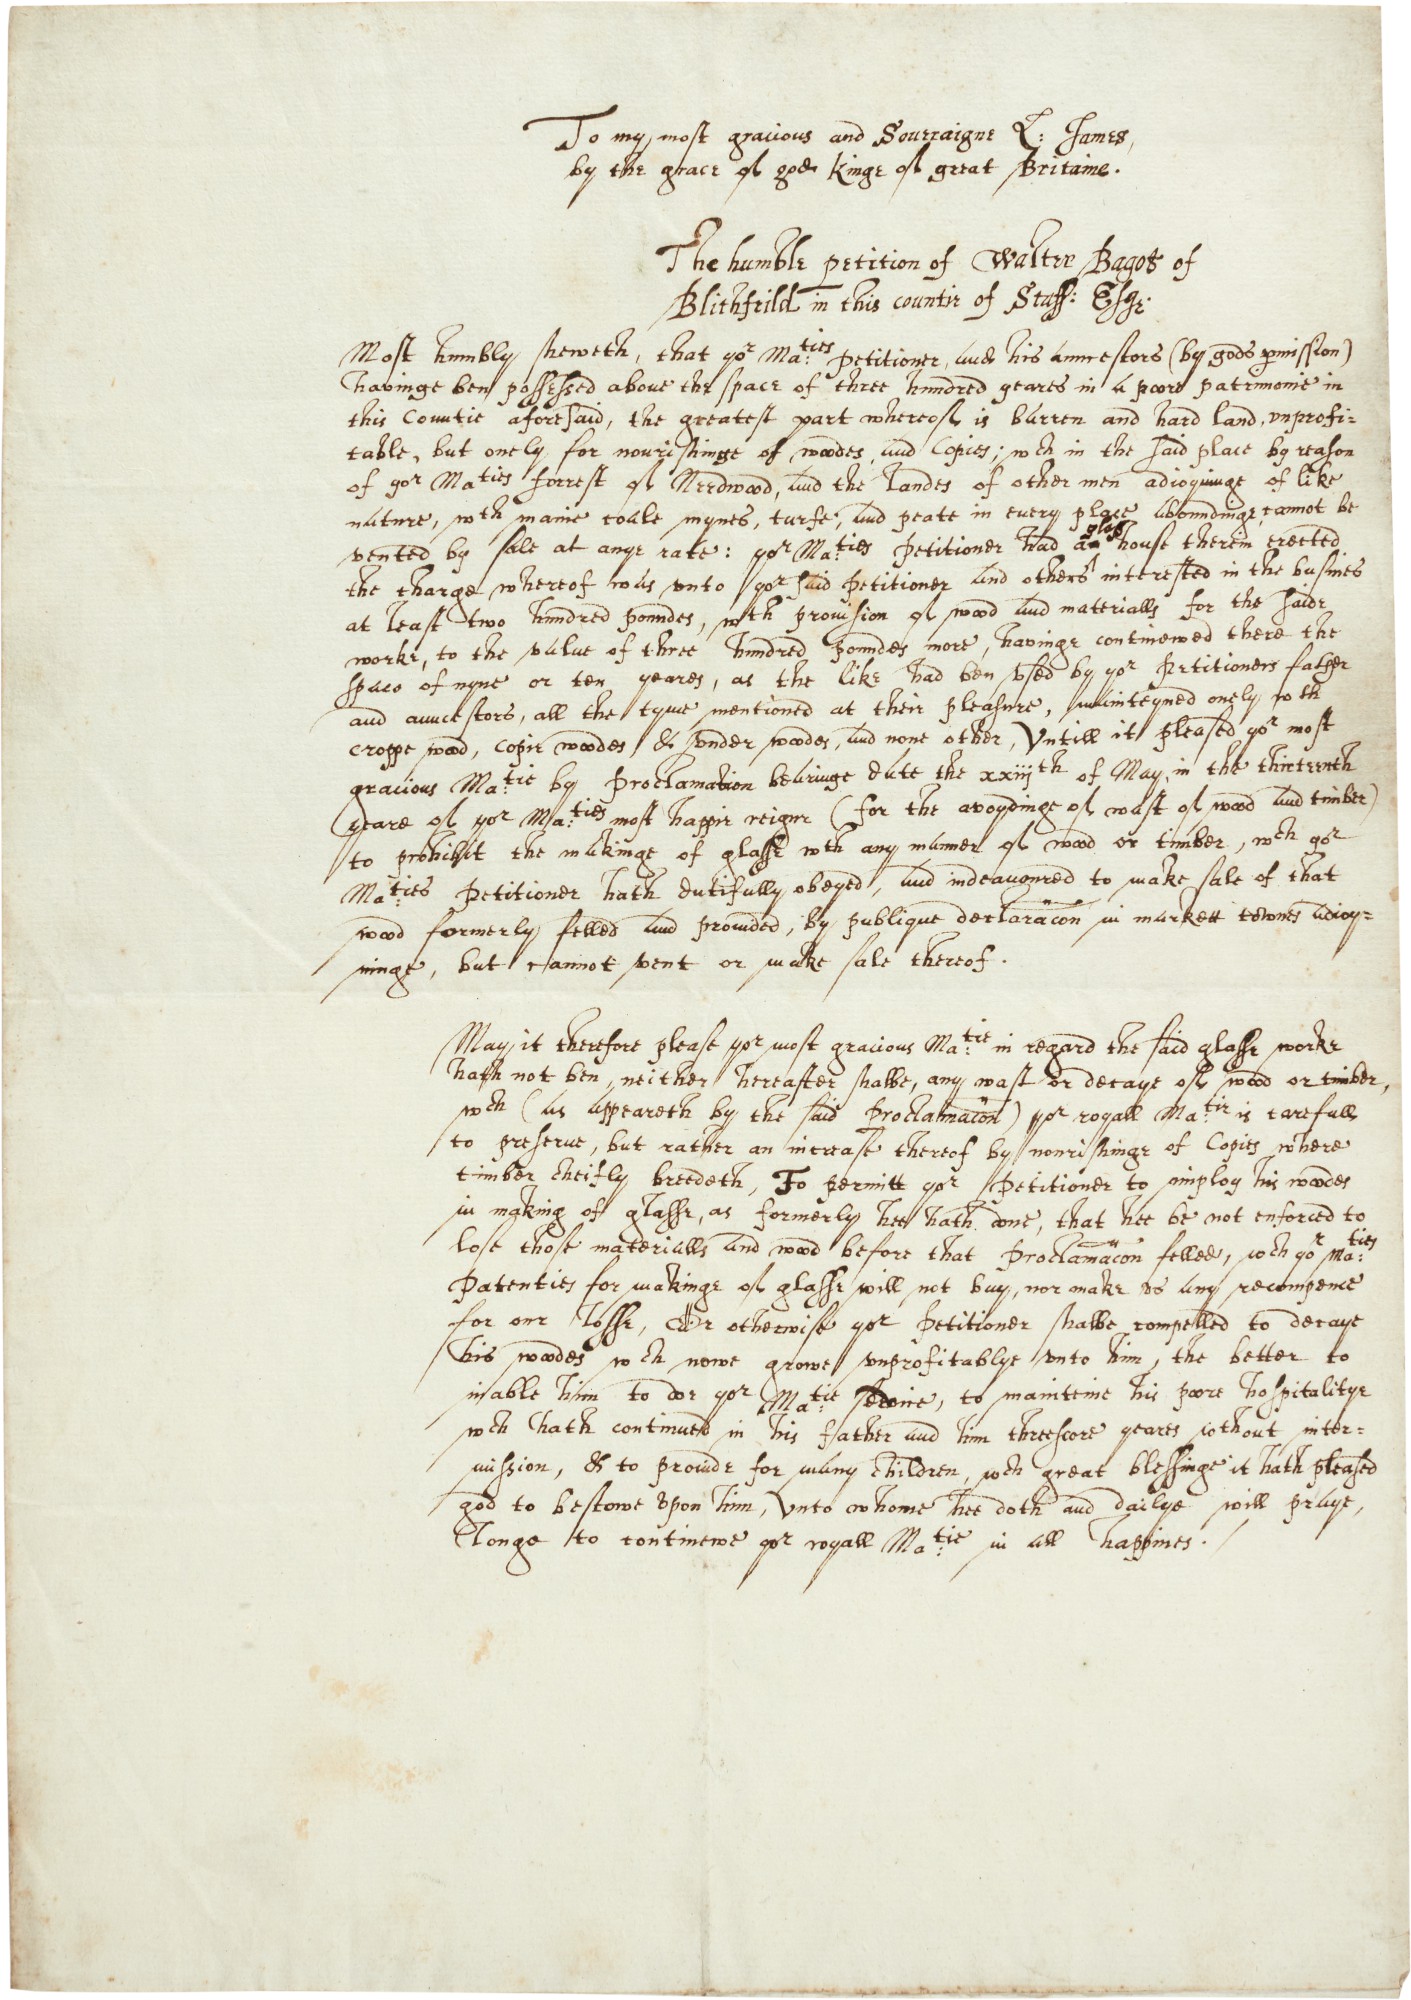 To my most gracious and Soueraigne L: James,
by the grace of god kinge of great Britaine.
The humble petition of Walter Bagot of
Blithfeild in this countie of Staff: Esqr.
Most humbly sheweth, that yor Ma:ties Petitioner, and his auncestors (by gods pmission)
havinge ben possessed aboue the space of three hundred yeares in a poore patrimonie in
this Countie aforesaid, the greatest part whereof is barren and hard land, vnprofi-
table, but onely for nourishinge of woodes and Copies; wch in the said place by reason
of yor Maties forrest of Needwood, and the landes of other men adioyninge of like
nature, wth manie coale mynes, turfe, and peate in every place aboundinge, cannot be
vented by sale at anye rate: yor Ma:ties Petitioner had a glass house therein erected
the charge whereof was vnto yor said Petitioner and others interested in the busines
at least two hundred poundes, wth provision of wood and materialls for the saide
worke, to the value of three hundred poundes more, havinge continewed there the
space of nyne or ten yeares, as the like had ben vsed by yor Petitioners father
and auncestors, all the tyme mentioned at their pleasure, mainteyned onely wth
croppe wood, copie woodes & vnder woodes, and none other, Vntill it pleased yor most
gracious Ma:tie by Proclamation bearinge date the xxiijth of May, in the thirteenth
yeare of yor Ma:ties most happie reigne (for the avoydinge of wast of wood and timber)
to prohibit the makinge of glasse wth any manner of wood or timber, wch yor
Ma:ties Petitioner hath dutifully obeyed, and indeauoured to make sale of that
wood formerly felled and prouided, by publique declaracon in markett townes adioy=
ninge, but cannot vent or make sale thereof.
May it therefore please yor most gracious Ma:tie in regard the said glasse worke
hath not ben, neither hereafter shalbe, any wast or decaye of wood or timber,
wch (as appeareth by the said Proclamacon) yor royall Ma:tie is carefull
to preserue, but rather an increase thereof by nourishinge of Copies where
timber cheifly breedeth, To permitt yor Petitioner to imploy his woodes
in making of glasse, as formerly hee hath done, that hee be not enforced to
lose those materialls and wood before that Proclamacon felled, wch yor Ma:ties
Patenties for makinge of glasse will not buy, nor make vs any recompence
for our losse, Or otherwise yor Petitioner shalbe compelled to decaye
his woodes wch nowe growe vnprofitablye vnto him, the better to
inable him to doe yor Ma:tie seruice, to mainteine his poore hospitalitye
wch hath continued in his father and him threescore yeares without inter-
mission, & to prouide for many children, wch great blessinge it hath pleased
god to bestowe vpon him, Vnto whome hee doth and dailye will praye,
Longe to continewe yor royall Ma:tie in all happines.